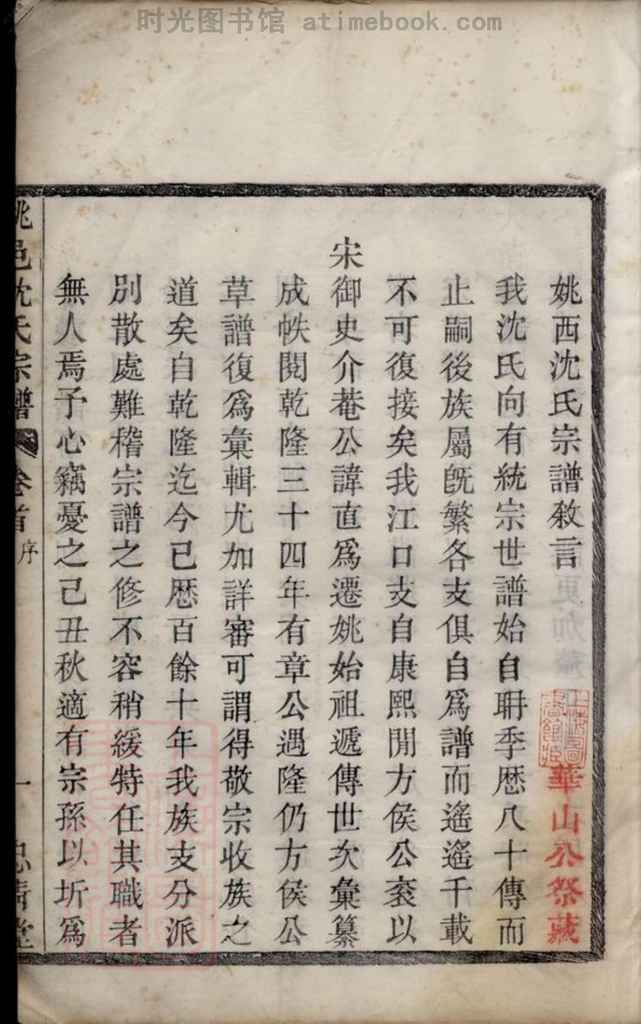 时光图书馆 atimebook.com
姚西沈氏宗譜敘言
華山公祭蔵
我沈氏向有統宗世譜始自聃季歷八十傳而
止嗣後族屬旣繁各支俱自爲譜而遙遙千載
不可復接矣我江口支自康熙閒方侯公衮以
宋御史介菴公諱直爲遷姚始祖遞傳世次彙纂
成帙閱乾隆三十四年有章公遇隆仍方侯公
草譜復爲彙輯尤加詳審可謂得敬宗收族之
道矣自乾隆迄今已歷百餘十年我族支分派
別散處難稽宗譜之修不容稍緩特任其職者
無人焉予心竊憂之己丑秋適有宗孫以圻爲
姚邑沈氏宗譜 卷首 序 一 忠清堂